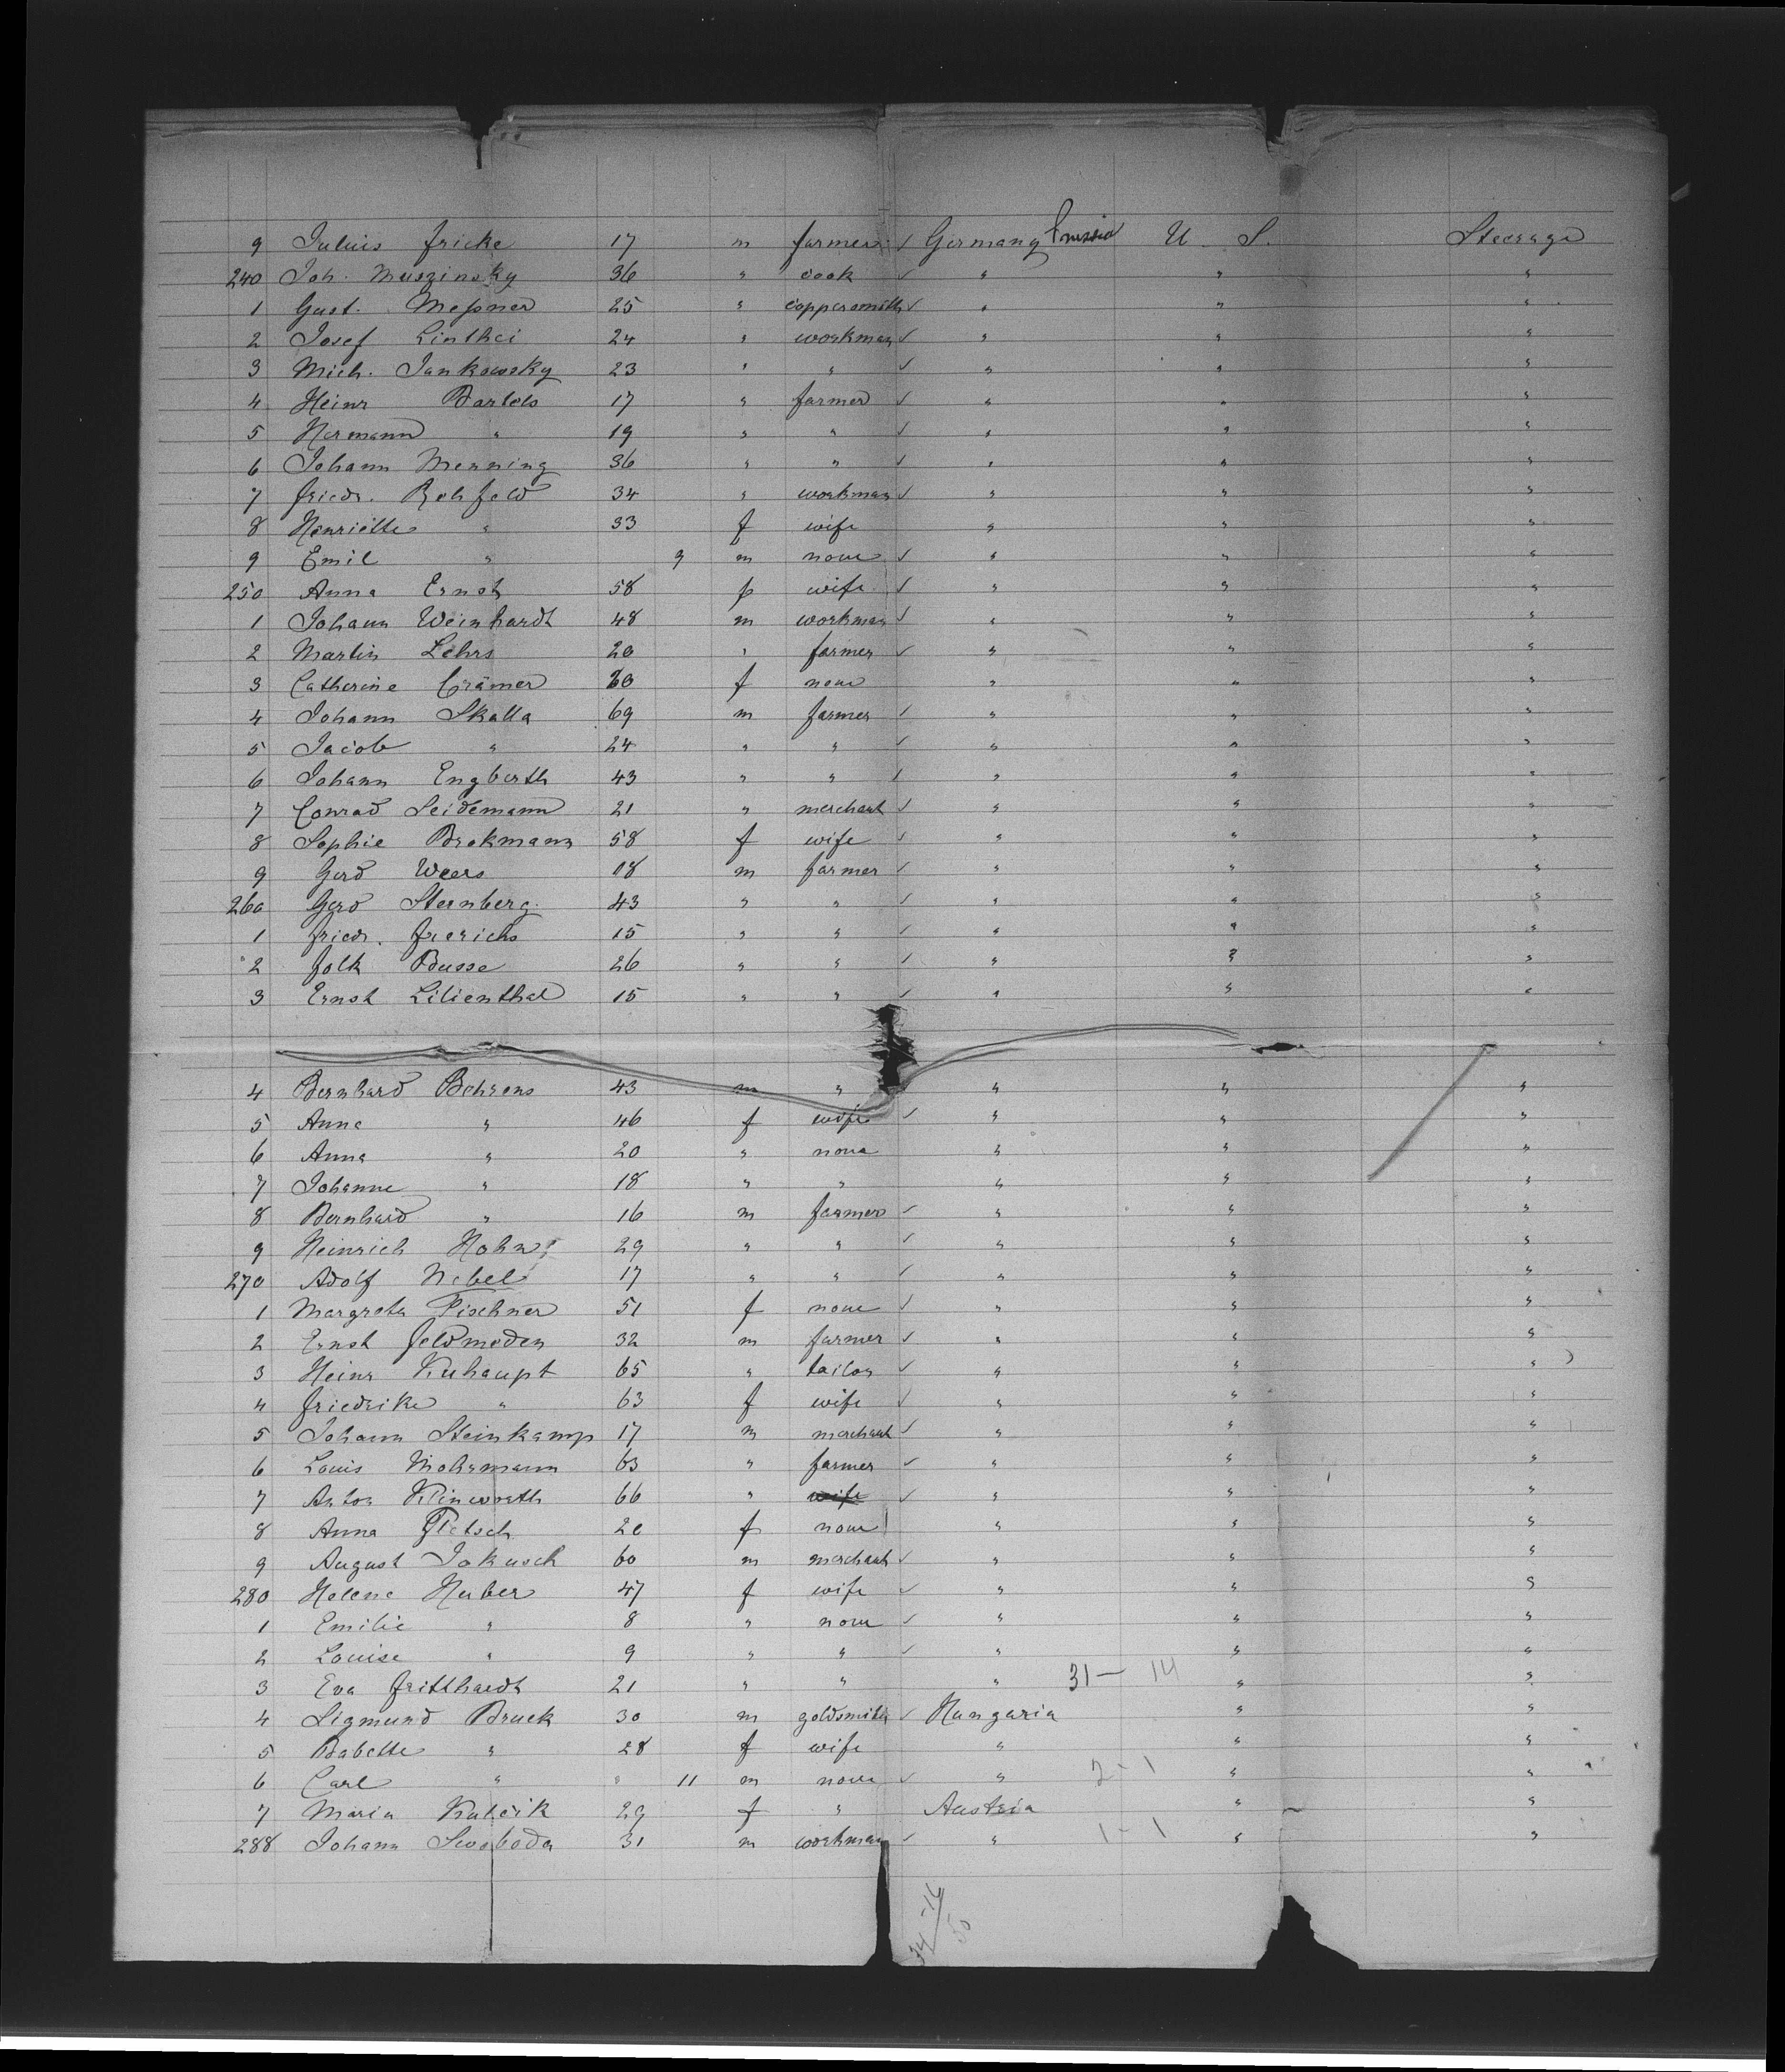 9 Julius Fricke 17 m farmer ✓ Germany Prussia U. S. Steerage
240 Joh. Muszinsky 36 " cook ✓ " " "
1 Gust. Meßner 25 " coppersmith ✓ " " "
2 Josef Linthei 24 " workman ✓ " " "
3 Mich. Jankowsky 23 " " ✓ " " "
4 Heinr Bartels 17 " farmer ✓ " " "
5 Hermann " 19 " " ✓ " " "
6 Johann Menning 36 " " ✓ " " "
7 Friedr. Rehfeld 34 " workman ✓ " " "
8 Henriette " 33 f wife " " "
9 Emil " 9 m none ✓ " " "
250 Anna Ernst 58 f wife ✓ " " "
1 Johann Weinhardt 48 m workman ✓ " " "
2 Martin Lehrs 20 " farmer ✓ " " "
3 Catherine Crämer 20 f none " " "
4 Johann Skalla 69 m farmer ✓ " " "
5 Jacob " 24 " " ✓ " " "
6 Johann Engberth 43 " " ✓ " " "
7 Conrad Seidemann 21 " merchant ✓ " " "
8 Sophie Brokmann 58 f wife ✓ " " "
9 Gerd Weers 18 m farmer ✓ " " "
260 Gerd Sternberg 43 " " ✓ " " "
1 Friedr. Frerichs 15 " " ✓ " " "
2 Folk Busse 26 " " ✓ " " "
3 Ernst Lilienthal 15 " " ✓ " " "
4 Bernhard Behrens 43 m " " " "
5 Anna " 46 f wife ✓ " " "
6 Anna " 20 " none " " "
7 Johanne " 18 " " " " "
8 Bernhard " 16 m farmer ✓ " " "
9 Heinrich Hohn 29 " " ✓ " " "
270 Adolf Nebel 17 " " ✓ " " "
1 Margreta Tischner 51 f none ✓ " " "
2 Ernst Feldmeden 32 m farmer ✓ " " "
3 Heinr Kuhaupt 65 " tailor ✓ " " "
4 Friedrike " 63 f wife ✓ " " "
5 Johann Steinkamp 17 m merchant ✓ " " "
6 Louis Mohrmann 63 " farmer ✓ " " "
7 Anton Klinworth 66 " wife ✓ " " "
8 Anna 20 f none " " "
9 August Jakusch 60 m merchant ✓ " " "
280 Helene Huber 47 f wife ✓ " " "
1 Emilie " 8 " none ✓ " " "
2 Louise " 9 " " ✓ " " "
3 Eva Fritthardt 21 " " " 31 — 14 " "
4 Sigmund Bruck 30 m goldsmith ✓ Hungaria " "
5 Babette " 28 f wife " " "
6 Carl " " 11 m none ✓ " 2 - 1 " "
7 Maria 29 f " Austria " "
288 Johann Swoboda 31 m workman ✓ " 1 - 1 " "
34 - 16
50